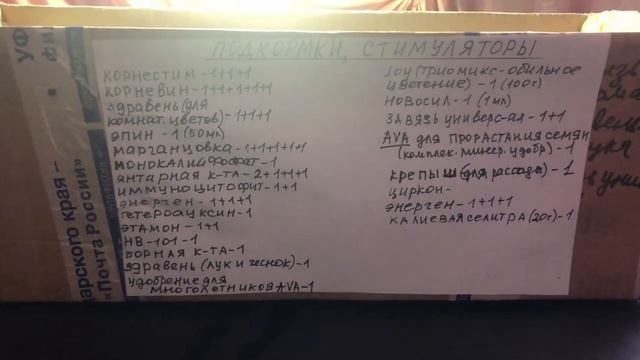 ПОДКОРМКИ, СТИМУЛЯТОРЫ
КОРНЕСТИМ-1+1+1
КОРНЕВИН-1+1+1+1+1
ЗДРАВЕНЬ (ДЛЯ
КОМНАТ. ЦВЕТОВ)-1+1+1
ЭПИН-1 (50МЛ)
МАРГАНЦОВКА-1+1+1+1+1
МОНОКАЛИЙФОСФАТ-1
ЯНТАРНАЯ К-ТА-2+1+1+1
ИММУНОЦИТОФИТ-1+1
ЭНЕРГЕН-1+1+1
ГЕТЕРОАУКСИН-1
ЭТАМОН-1+1
НВ-101-1
БОРНАЯ К-ТА-1
ЗДРАВЕНЬ (ЛУК И ЧЕСНОК)-1
УДОБРЕНИЕ ДЛЯ
МНОГОЛЕТНИКОВ AVA-1
JOY (ТРИОМИКС-ОБИЛЬНОЕ
ЦВЕТЕНИЕ)-1 (100Г)
НОВОСИЛ-1 (1МЛ)
ЗАВЯЗЬ УНИВЕРС-АЯ-1+1
AVA ДЛЯ ПРОРАСТАНИЯ СЕМЯН
(КОМПЛЕК. МИНЕР. УДОБР)-1
КРЕПЫШ (ДЛЯ РАССАДЫ)-1
ЦИРКОН-
ЭНЕРГЕН-1+1+1
КАЛИЕВАЯ СЕЛИТРА (20Г)-1
дарского края –
«Почта России»